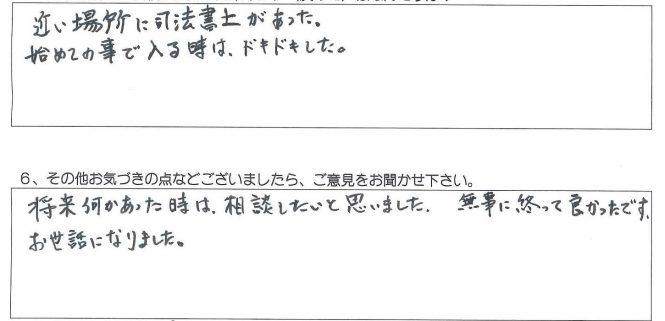 近い場所に司法書士があった。
始めての事で入る時は、ドキドキした。
6、その他お気づきの点などございましたら、ご意見をお聞かせ下さい。
将来何かあった時は、相談したいと思いました. 無事に終って良かったです、
お世話になりました。